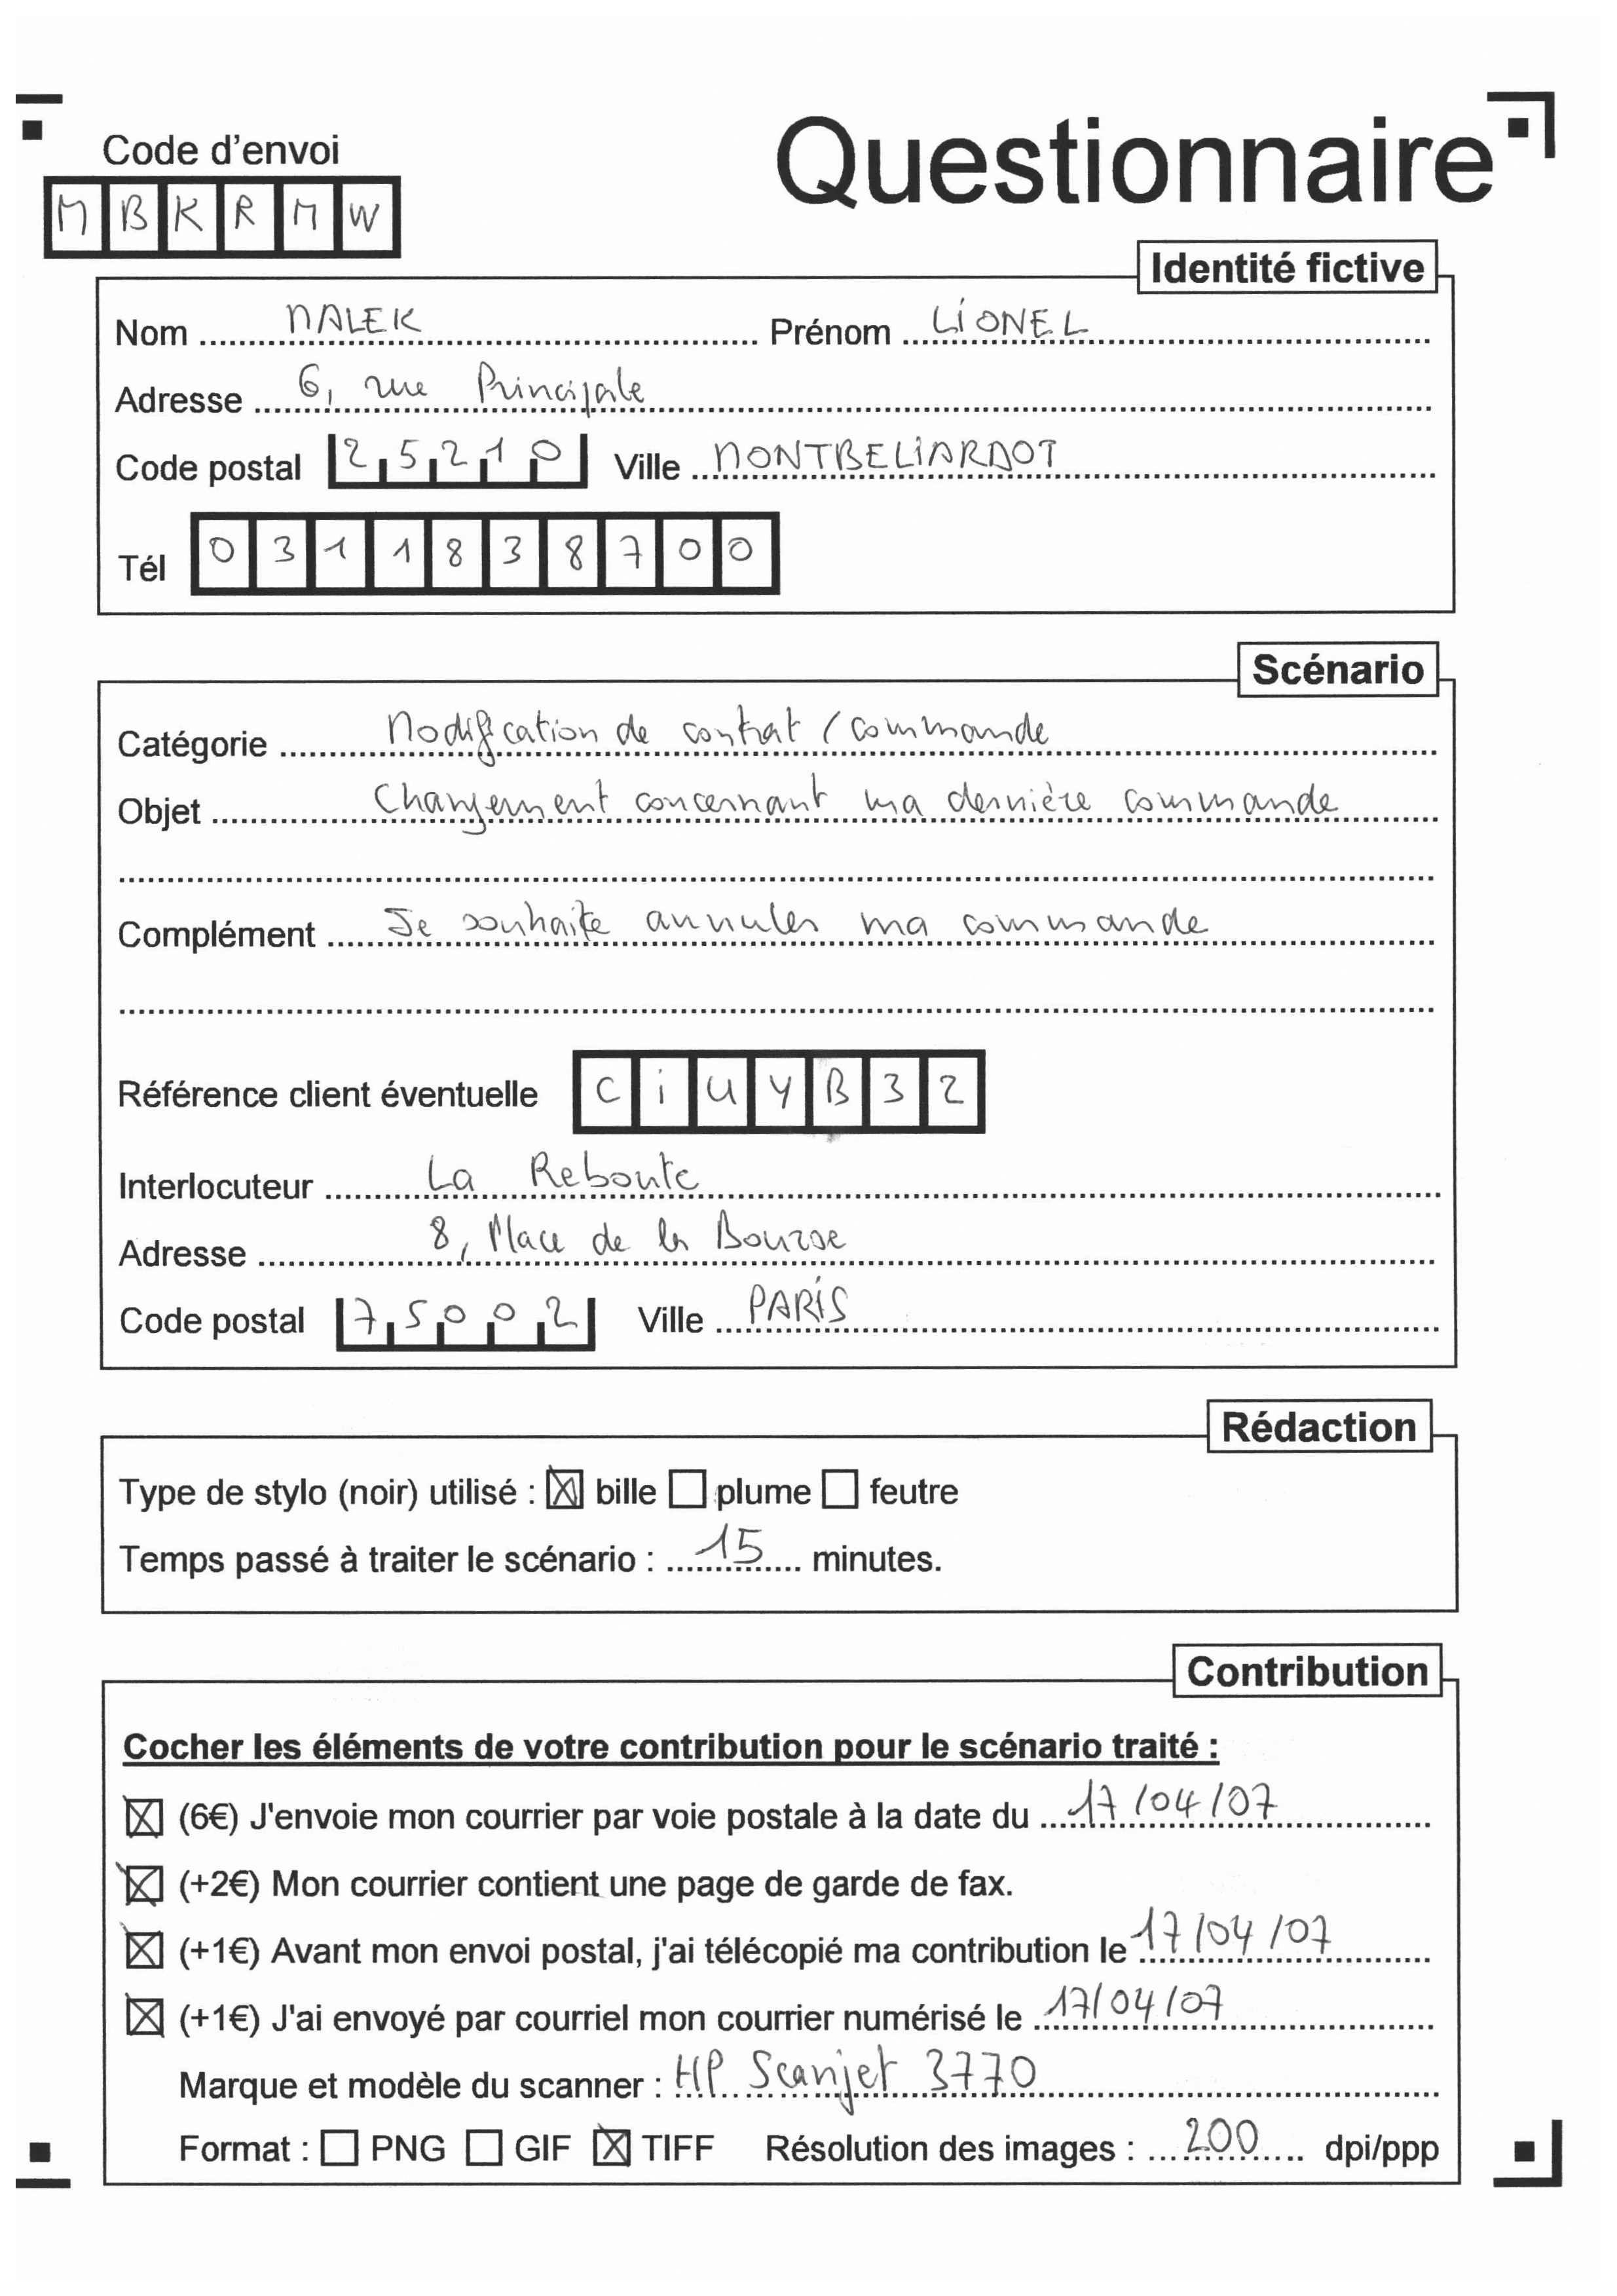 Code d'envoi
Questionnaire
MBKRMW
Identité fictive
Nom MALEK Prénom LIONEL
Adresse 6, rue Principale
Code postal 25210 Ville MONTBELIARDOT
Tél 0311838700
Scénario
Catégorie Modification de contrat / commande
Objet Changement concernant ma dernière commande
Complément Je souhaite annuler ma commande
Référence client éventuelle CiUYB32
Interlocuteur La Reboute
Adresse 8, Place de la Bourse
Code postal 75002 Ville PARIS
Rédaction
Type de stylo (noir) utilisé : ☒ bille ☐ plume ☐ feutre
Temps passé à traiter le scénario : 15 minutes.
Contribution
Cocher les éléments de votre contribution pour le scénario traité :
☒ (6€) J'envoie mon courrier par voie postale à la date du 17/04/07
☒ (+2€) Mon courrier contient une page de garde de fax.
☒ (+1€) Avant mon envoi postal, j'ai télécopié ma contribution le 17/04/07
☒ (+1€) J'ai envoyé par courriel mon courrier numérisé le 17/04/07
Marque et modèle du scanner : HP Scanjet 3770
Format : ☐ PNG ☐ GIF ☒ TIFF Résolution des images : 200 dpi/ppp